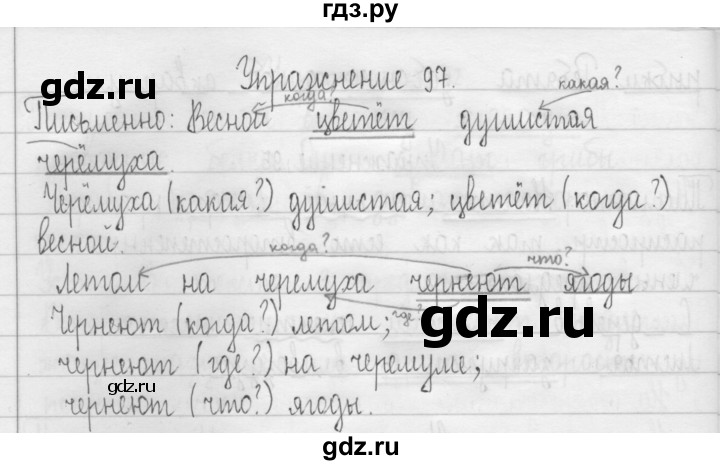 гдз.ру
Упражнение 97.
когда? какая?
Письменно: Весной цветёт душистая
черёмуха.
Черёмуха (какая?) душистая; цветёт (когда?)
весной.
когда? что?
Летом на черемуха чернеют ягоды
где?
Чернеют (когда?) летом;
чернеют (где?) на черемуме;
чернеют (что?) ягоды.
gdz.ru
gdz.ru
gdz.ru
gdz.ru
gdz.ru
gdz.ru